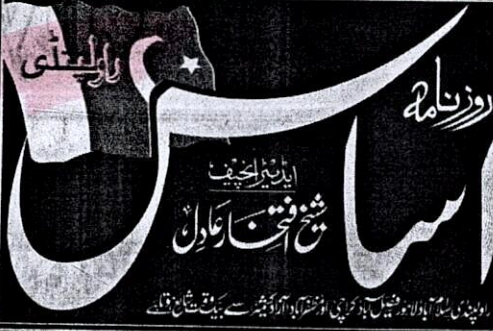 روزنامہ
اساس
راولپنڈی
ایڈیٹر انچیف
شیخ افتخار عادل
راولپنڈی اسلام آباد لاہور فیصل آباد کراچی اور مظفرآباد آزاد کشمیر سے بیک وقت شائع ہوتا ہے